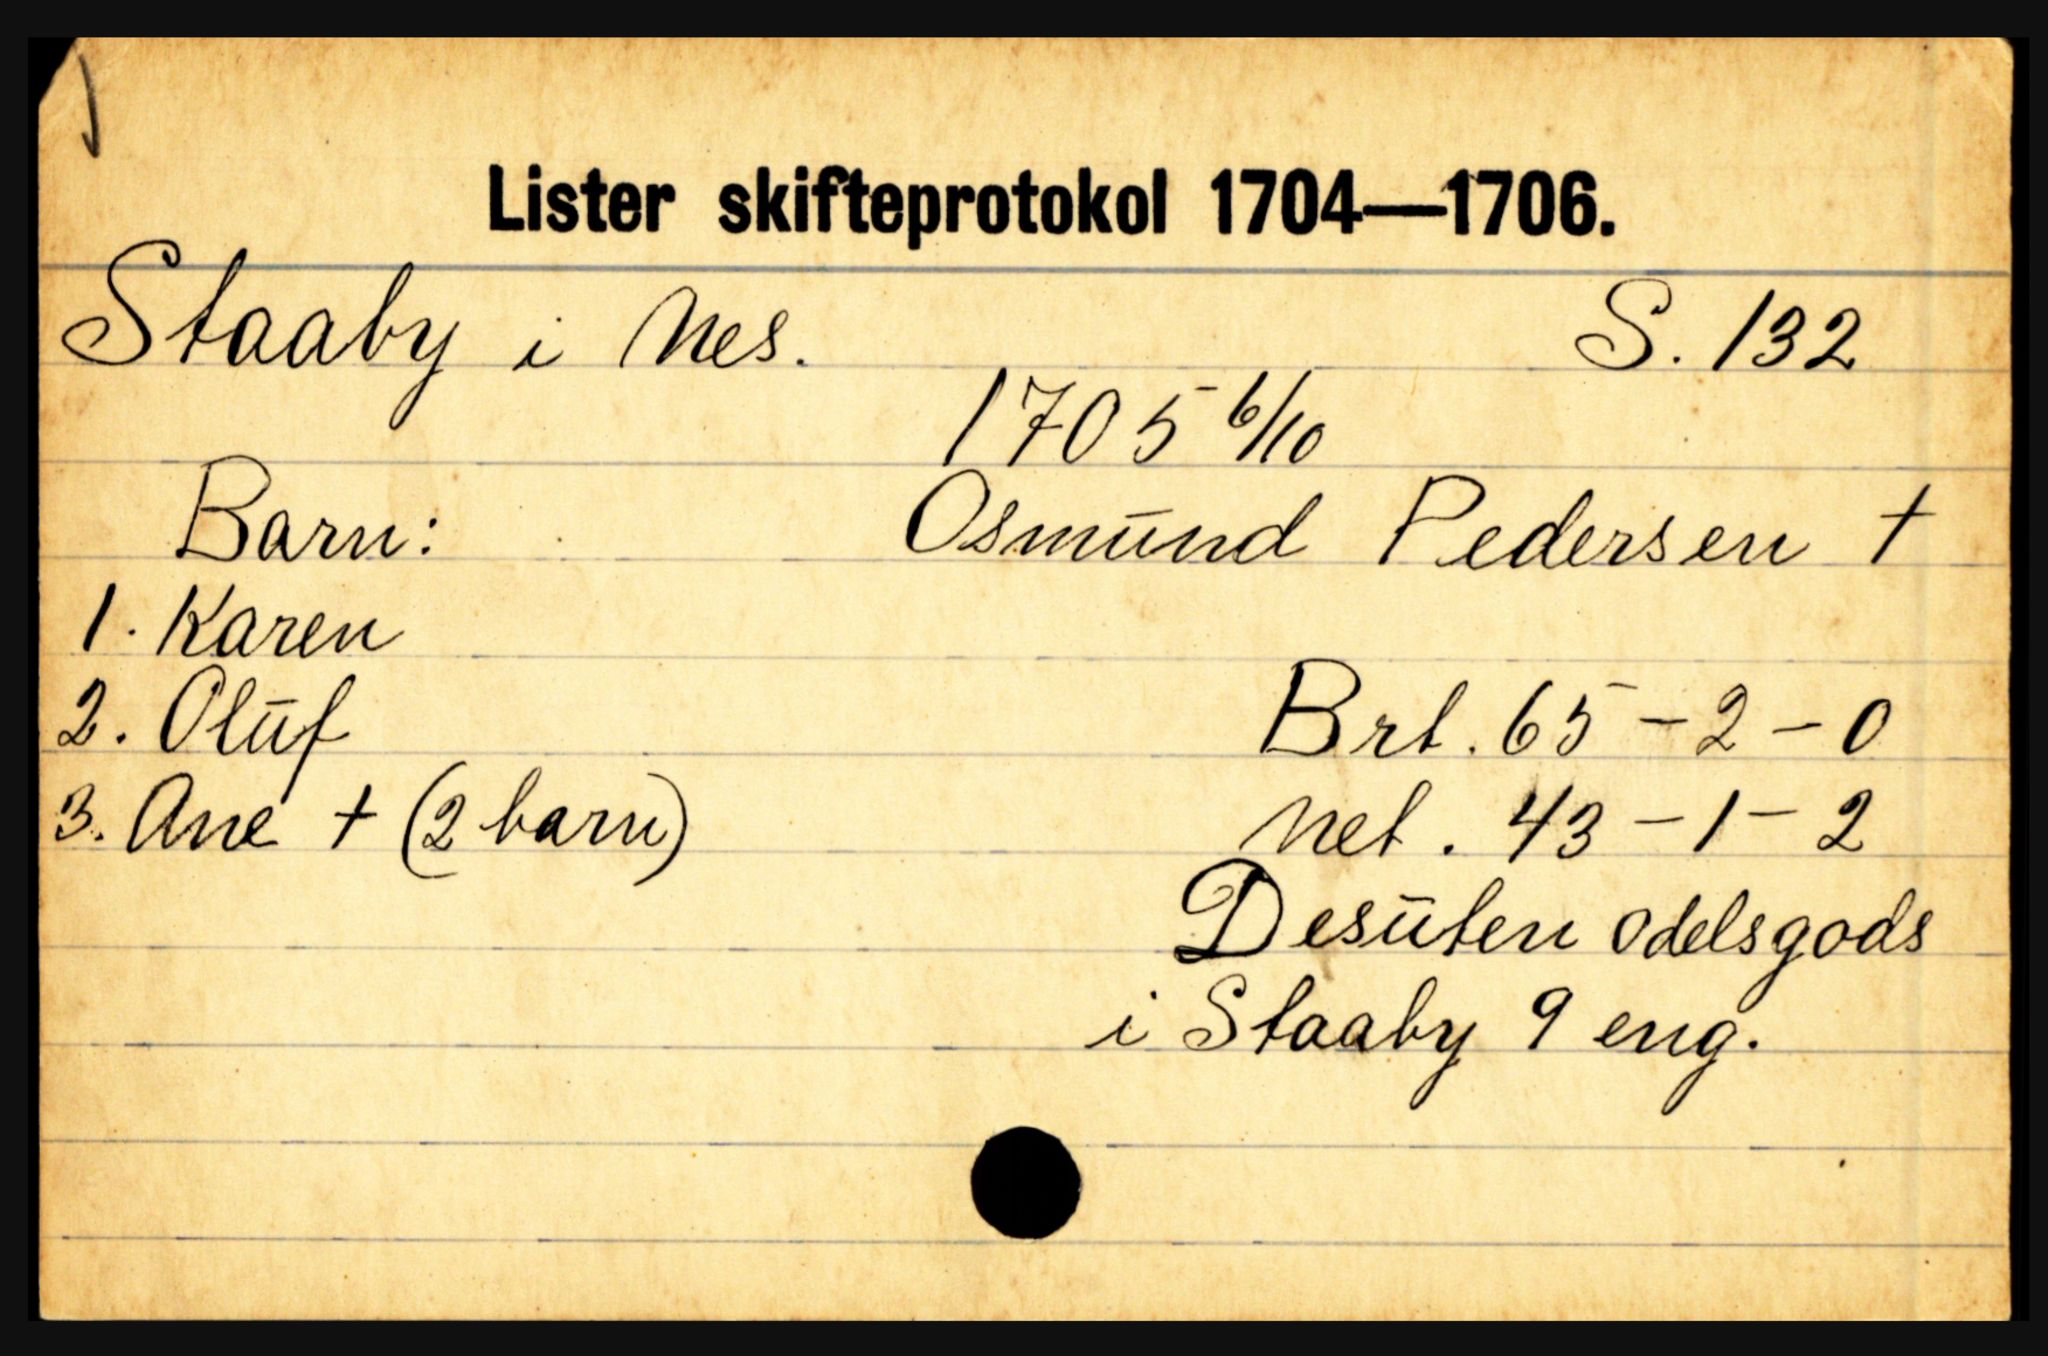 Lister skifteprotokol 1704—1706.
Staaby i Nes. S. 132
1705 6/10
Barn: Osmund Pedersen †
1. Karen
2. Oluf Brt. 65 – 2 – 0
3. Ane † (2 barn) Net. 43 – 1 – 2
Desuten odelsgods
i Staaby 9 eng.